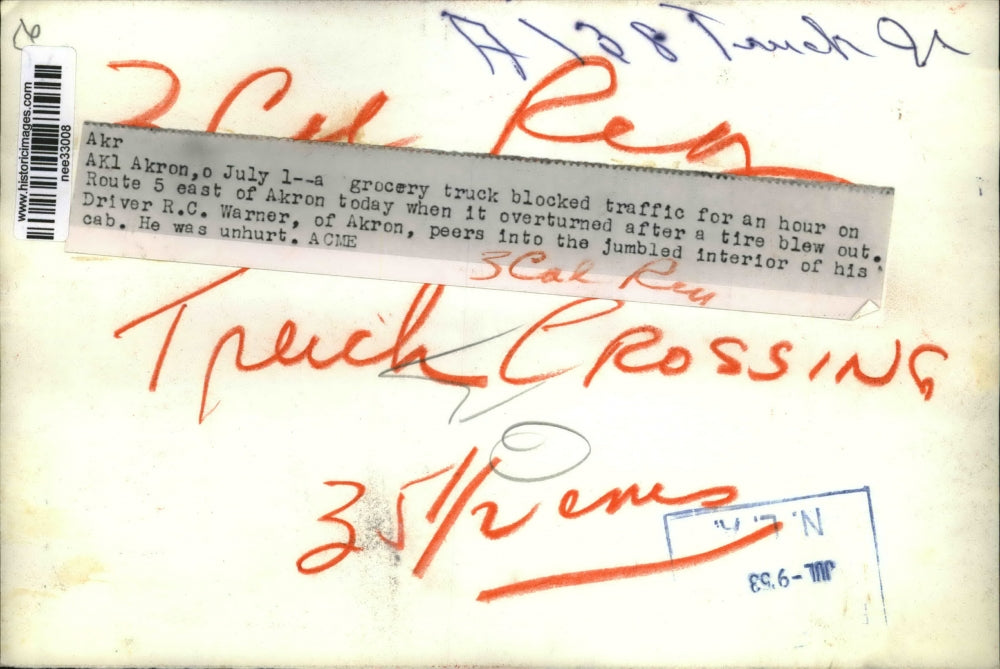 A138 Truck
3 Col Ren
www.historicimages.com
nee33008
Akr
AK1 Akron,o July 1--a grocery truck blocked traffic for an hour on
Route 5 east of Akron today when it overturned after a tire blew out.
Driver R.C. Warner, of Akron, peers into the jumbled interior of his
cab. He was unhurt. ACME
3 Col Ren
Truck CROSSING
35 1/2 ems
JUL-9'53